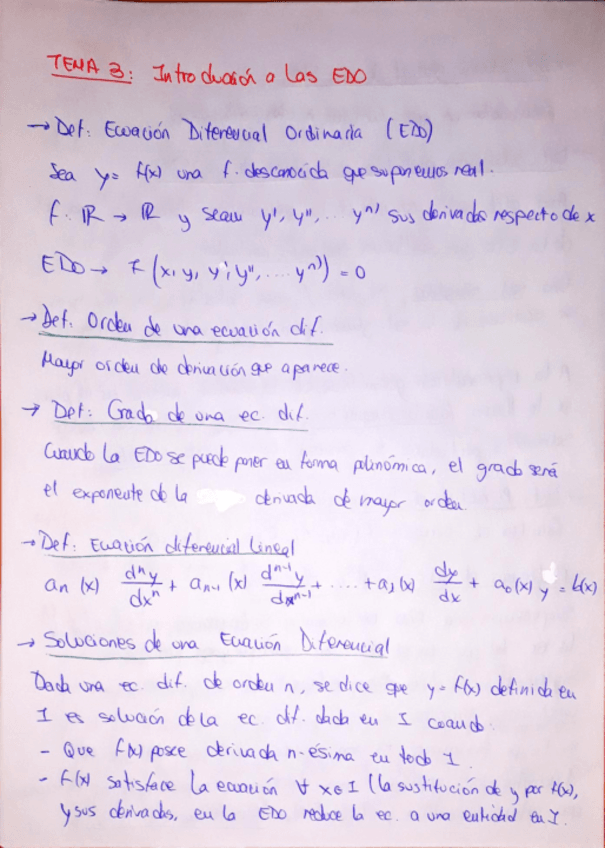 TEMA 3: Introducción a las EDO
→ Def: Ecuación Diferencial Ordinaria (EDO)
Sea y = f(x) una f. desconocida que suponemos real.
f: ℝ → ℝ y sean y', y'', .... yⁿ⁾ sus derivadas respecto de x
EDO → F (x, y, y', y'', .... yⁿ⁾) = 0
→ Def: Orden de una ecuación dif.
Mayor orden de derivación que aparece.
→ Def: Grado de una ec. dif.
Cuando la EDO se puede poner en forma polinómica, el grado será
el exponente de la derivada de mayor orden
→ Def: Ecuación diferencial lineal
an (x) dⁿy/dxⁿ + an-1 (x) dⁿ⁻¹y/dxⁿ⁻¹ + ..... + a1 (x) dy/dx + a0 (x) y = h(x)
→ Soluciones de una Ecuación Diferencial
Dada una ec. dif. de orden n, se dice que y = f(x) definida en
I es solución de la ec. dif. dada en I cuando:
- Que f(x) posee derivada n-ésima en todo I.
- f(x) satisface la ecuación ∀ x∈I (la sustitución de y por f(x),
y sus derivadas, en la EDO reduce la ec. a una entidad en I.